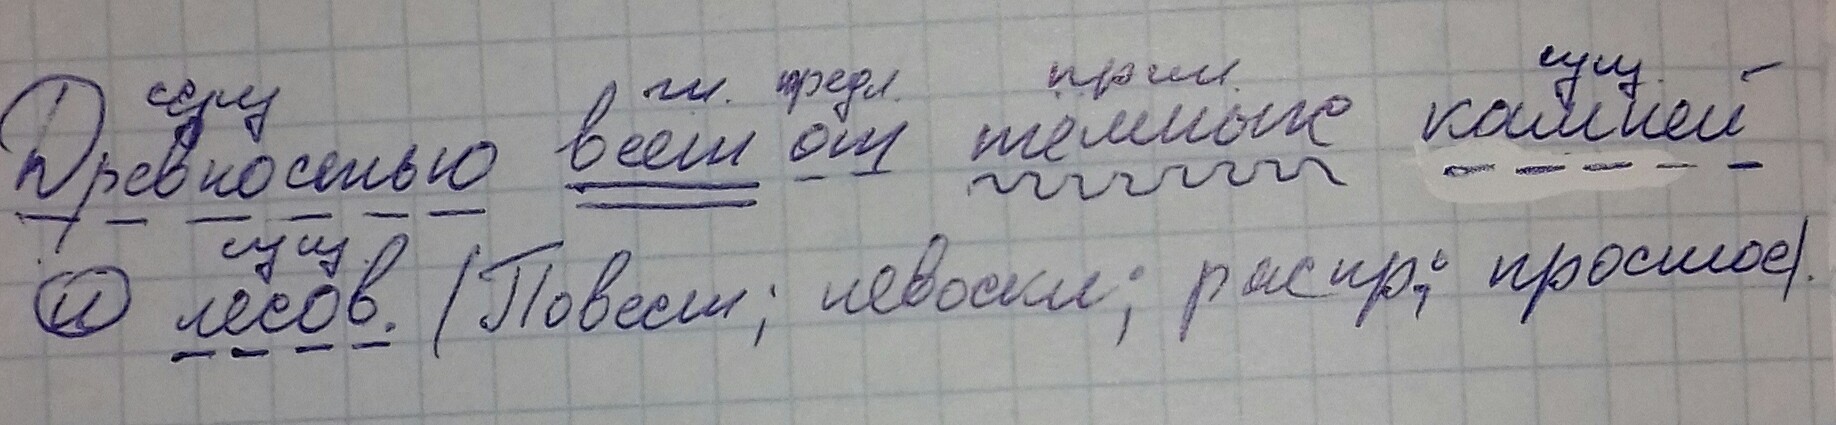 сущ гл. предл. прил. сущ.
Древностью веет от тёмных камней
сущ.
и лесов. (Повест.; невоскл.; распр.; простое).